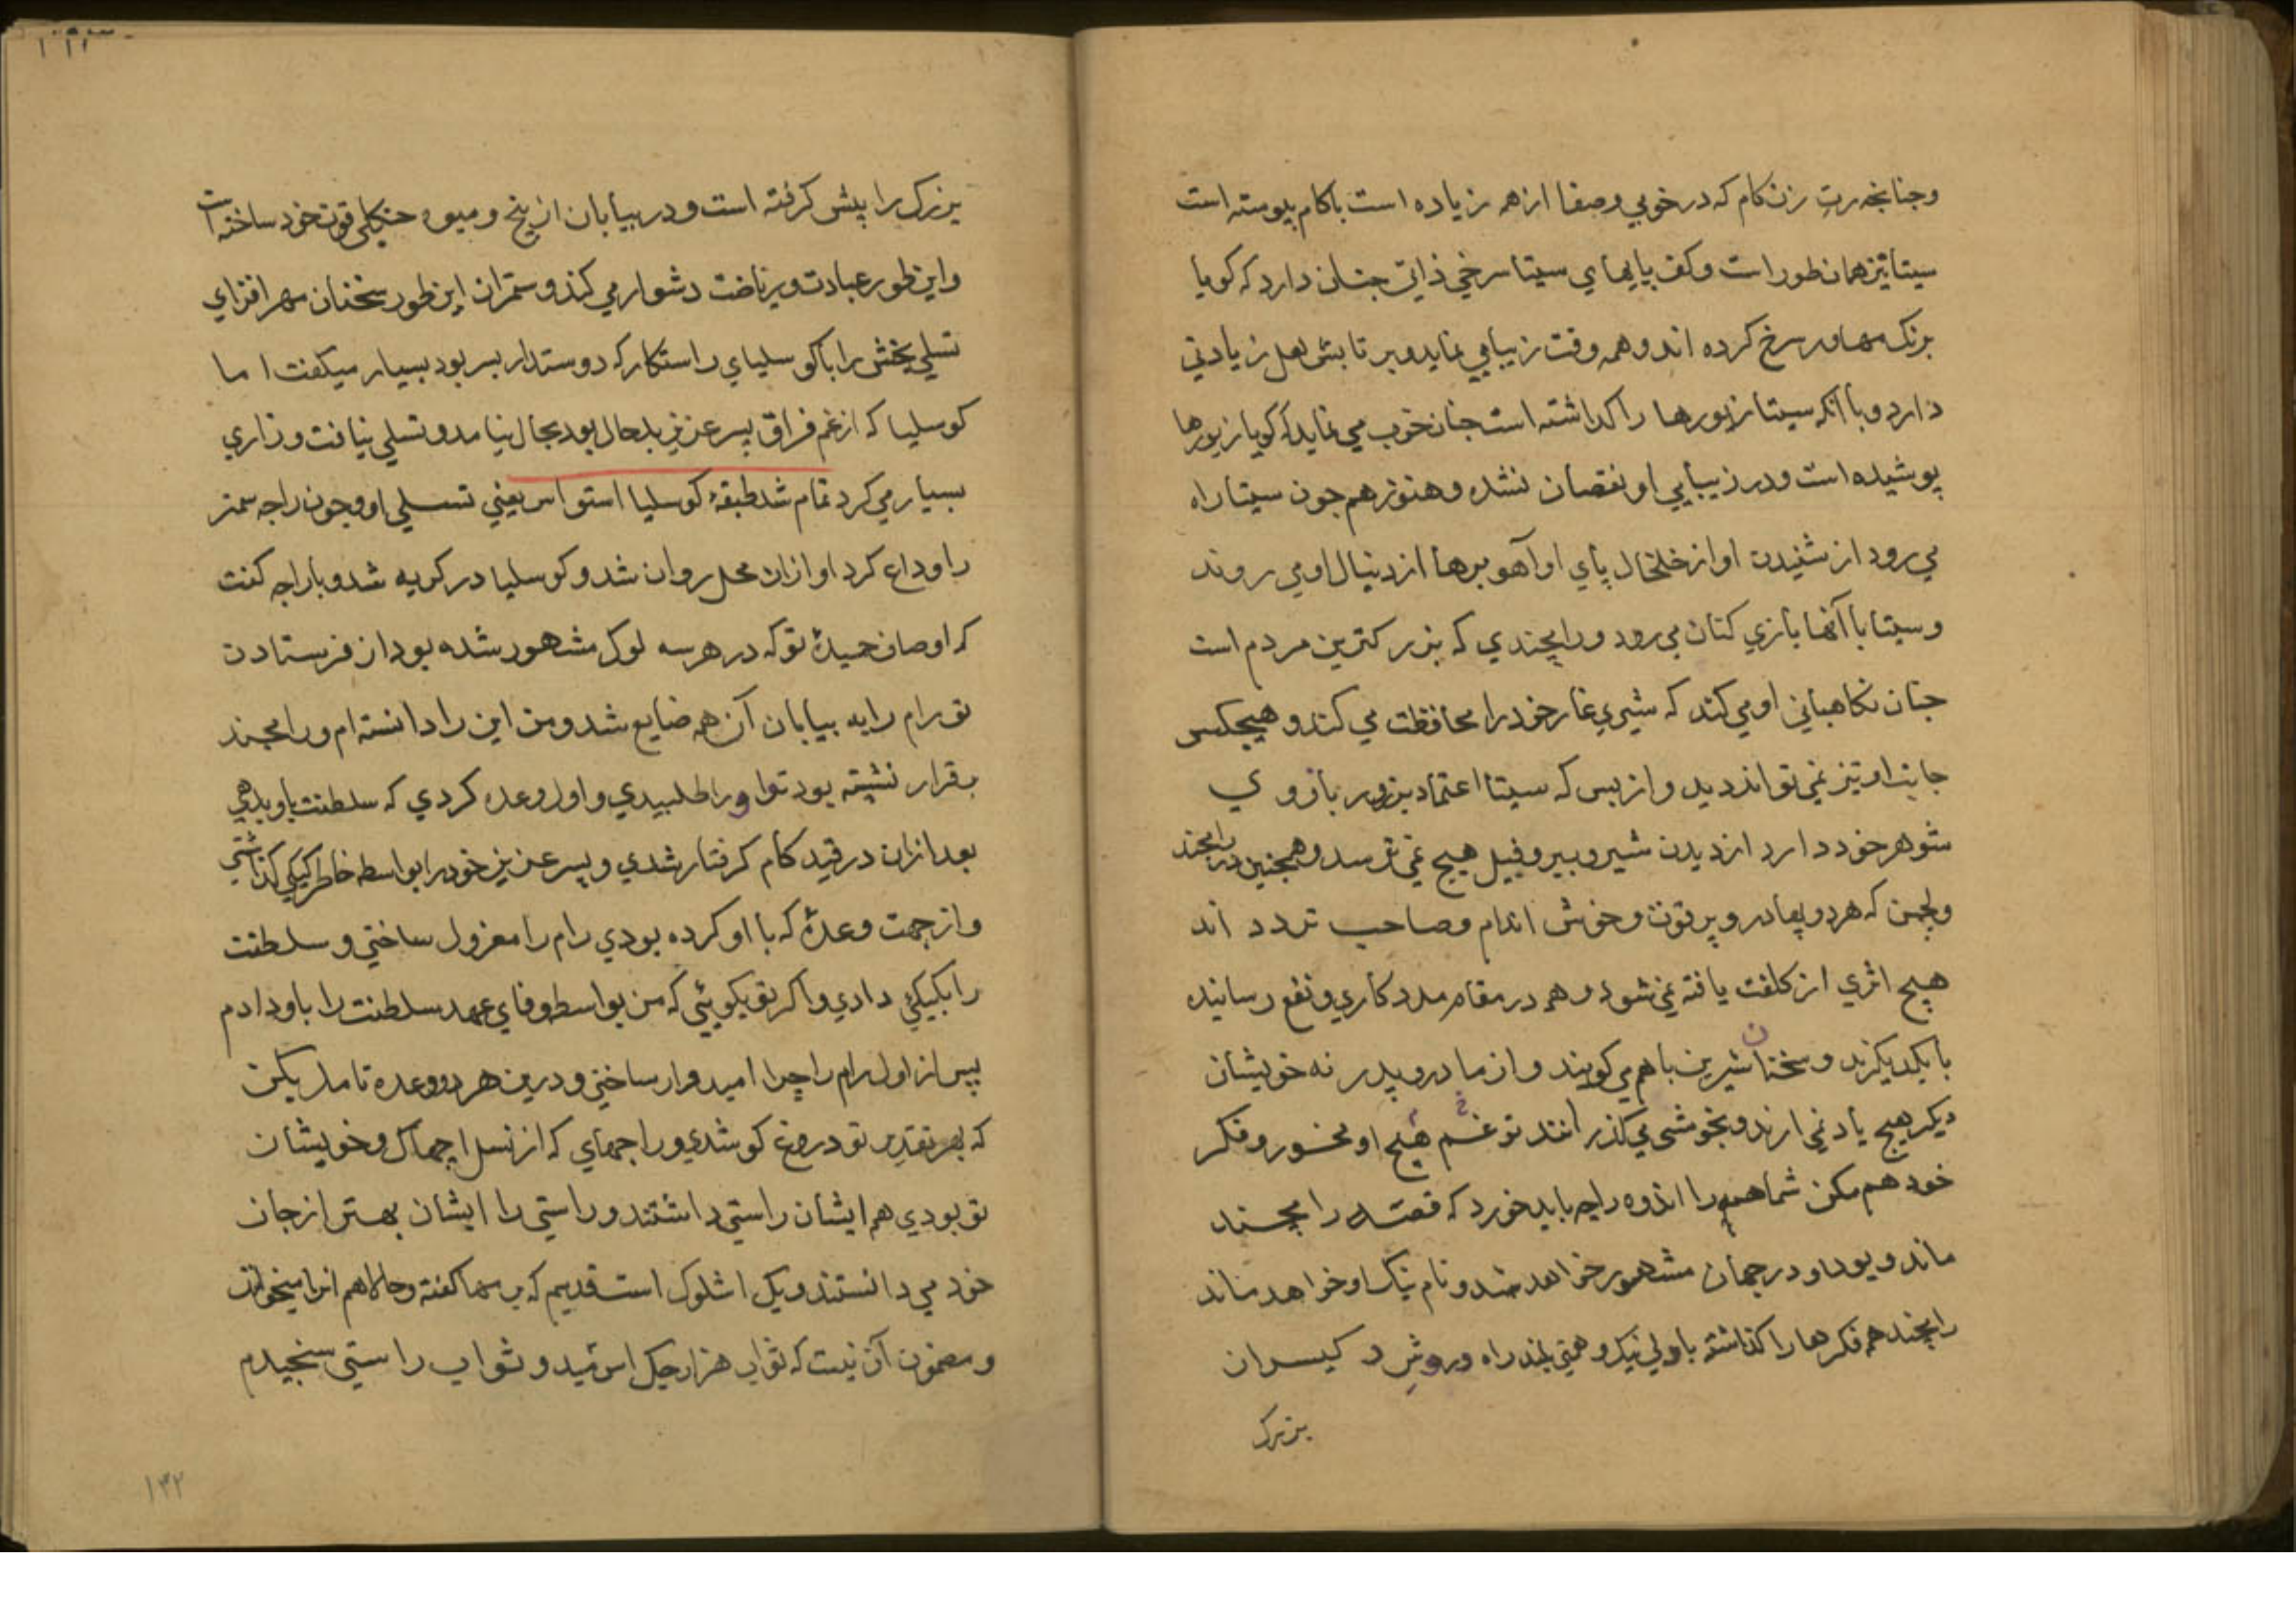 وچنانچه رت زن کام که در خوبي وصفا از همه زیاده است باکام پیوسته است
سیتا نیز همان طور است وکف پایهای سیتا سرخي ذاتي چنان دارد که کویا
برنک مهاور سرخ کرده اند و همه وقت زیبایي نماید وبر تابش لعل زیادتي
دارد وبا آنکه سیتا زیورها را کذاشته است چنان خوب مي نماید که کویا زیورها
پوشیده است ودر زیبایي او نقصان نشده وهنوز هم چون سیتا راه
مي رود از شنیدن اواز خلخال پاي او آهو برها از دنبال او مي روند
وسیتا با آنها بازي کنان مي رود ورامچندي که بزرکترین مردم است
چنان نکاهباني او مي کند که شیري غار خود را محافظت مي کند و هیچکس
جانب او تیز نمي تواند دید واز بس که سیتا اعتماد بزور بازو ي
شوهر خود دارد از دیدن شیر وببر وفیل هیچ نمي ترسد وهمچنین در رامچند
ولچمن که هر دو بهادر وپر قوت وخوش اندام وصاحب تردد اند
هیچ اثري از کلفت یافته نمي شود و هم در مقام مدد کاري ونفع رسانیده
بایکدیکرند وسخنان شیرین باهم مي کویند واز مادر وپدر نه خویشان
دیکر هیچ یاد نمي ارند وبخوشي مي کذرانند تو غم هیچ او مخور وفکر
خود هم مکن شما همه را اندوه راجه باید خورد که قصه رامچند
ماند وبود او در جهان مشهور خواهد شد ونام نیک او خواهد ماند
رامچند هم فکرها را کذاشته باولي نیک وهمتي بلند راه وروش د کیسران
بزرک
بزرک را پیش کرفته است ودر بیابان از بیخ ومیوه جنکلي قوت خود ساخته است
واین طور عبادت وریاضت دشوار مي کند وسمتران این طور سخنان مهر افزاي
تسلي بخش را باکوسلیاي راستکار که دوستدار پسر بود بسیار میکفت اما
کوسلیا که از غم فراق پسر عزیز بدحال بود بحال نیامد وتسلي نیافت وزاري
بسیار مي کرد تمام شد طبقه کوسلیا استواس یعني تسلي او وچون راجه سمتر
را وداع کرد او ازان محل روان شد وکوسلیا در کریه شد وبا راجه کفت
که اوصاف حمیدۀ توکه در هر سه لوک مشهور شده بود از فرستادن
تو رام را به بیابان آن همه ضایع شد ومن این را دانسته ام ورامچند
بقرار نشسته بود تو اورا طلبیدي واول وعده کردي که سلطنت باو بدهي
بعد ازان در قید کام کرفتار شدي وپسر عزیز خود را بواسطه خاطر کیکي کذاشتي
واز جهت وعدۀ که با او کرده بودي رام را معزول ساختي وسلطنت
را بکیکي دادي واکر تو بکویئي که من بواسطه وفاي عهد سلطنت را باو دادم
پس از اول رام را چرا امیدوار ساختي ودرین هر دو وعده تامل بکن
که بهر تقدیر تو دروغ کو شدي وراجهاي که از نسل اجهاک وخویشان
تو بودي هم ایشان راستي داشتند وراستي را ایشان بهتر از جان
خود مي دانستند ویک اشلوک است قدیم که برهما کفته وحالا هم انرا میخوانند
ومضمون آن نیست که ثواب هزار جک اسمید وثواب راستي سنجیدم
۱۳۲